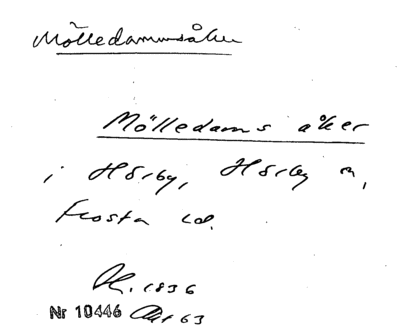 Mölledammsåker
Mölledams åker
i Hörby, Hörby sn,
Frosta hd.
1836
Nr 10446 Akt 63